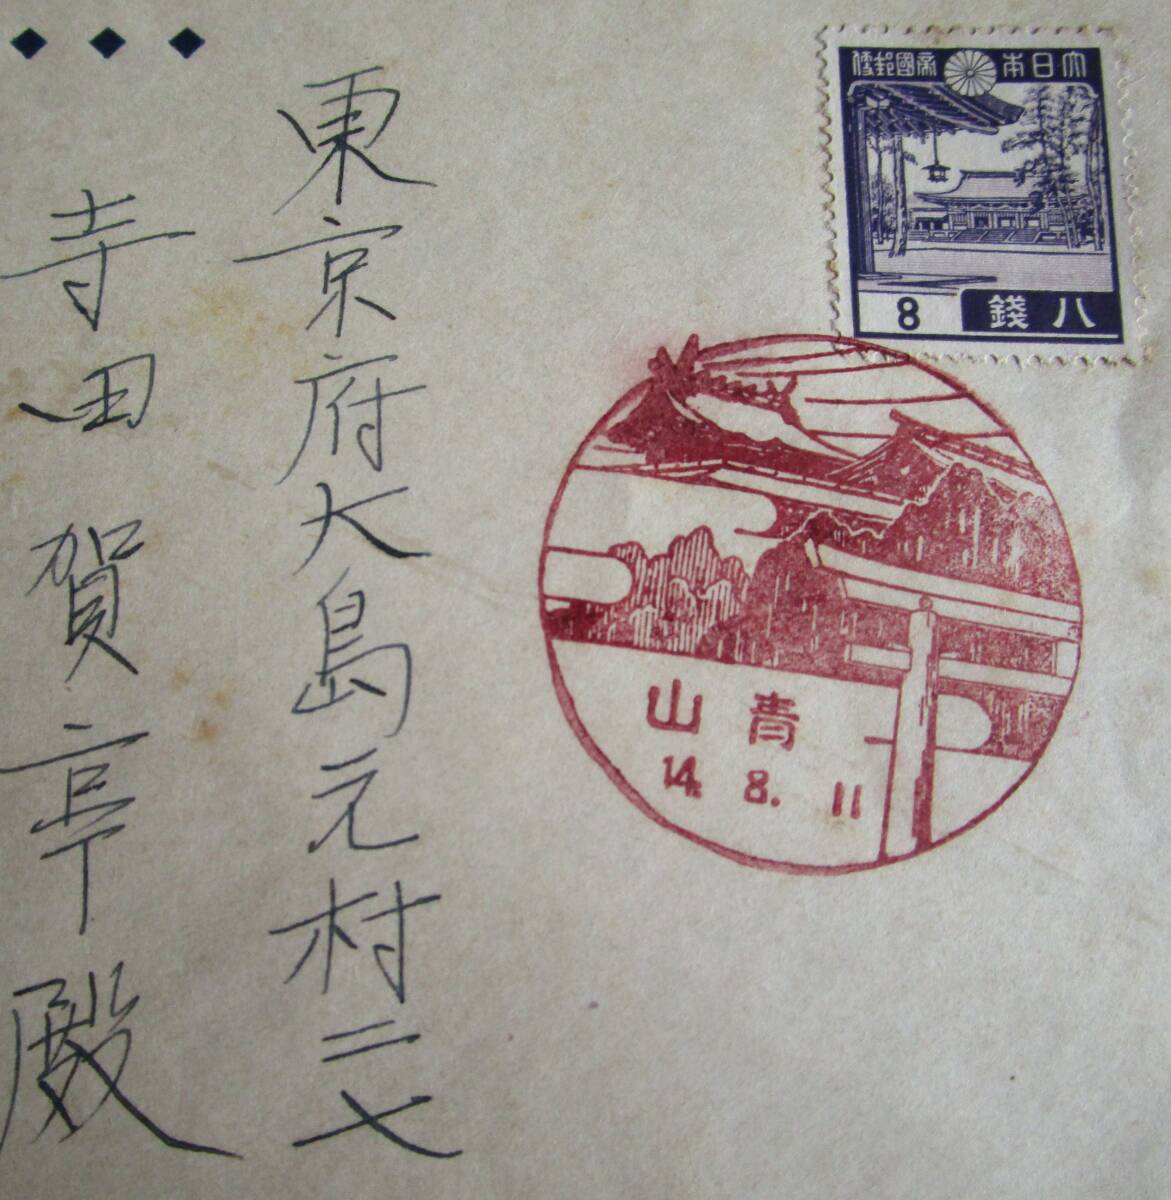 大日本帝國郵便
八錢 8
青山
14. 8. 11
東京府大島元村二七
寺田賀亭殿